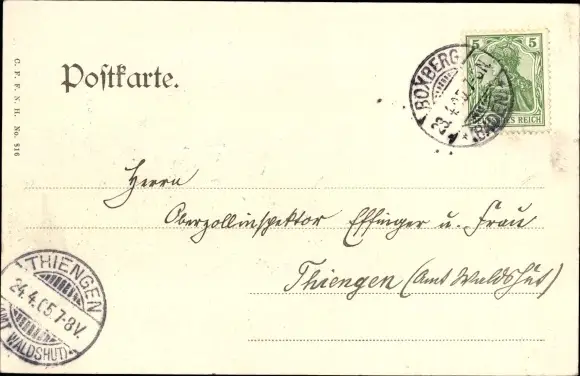 C. F. F. N. H. No. 816
Postkarte.
5 5
DEUTSCHES REICH
BOXBERG
23.4.05.7-8N.
*(BADEN)*
Herrn
Oberzollinspektor Effinger u. Frau
Thiengen (Amt Waldshut)
THIENGEN
24.4.05.7-8V.
(AMT WALDSHUT)